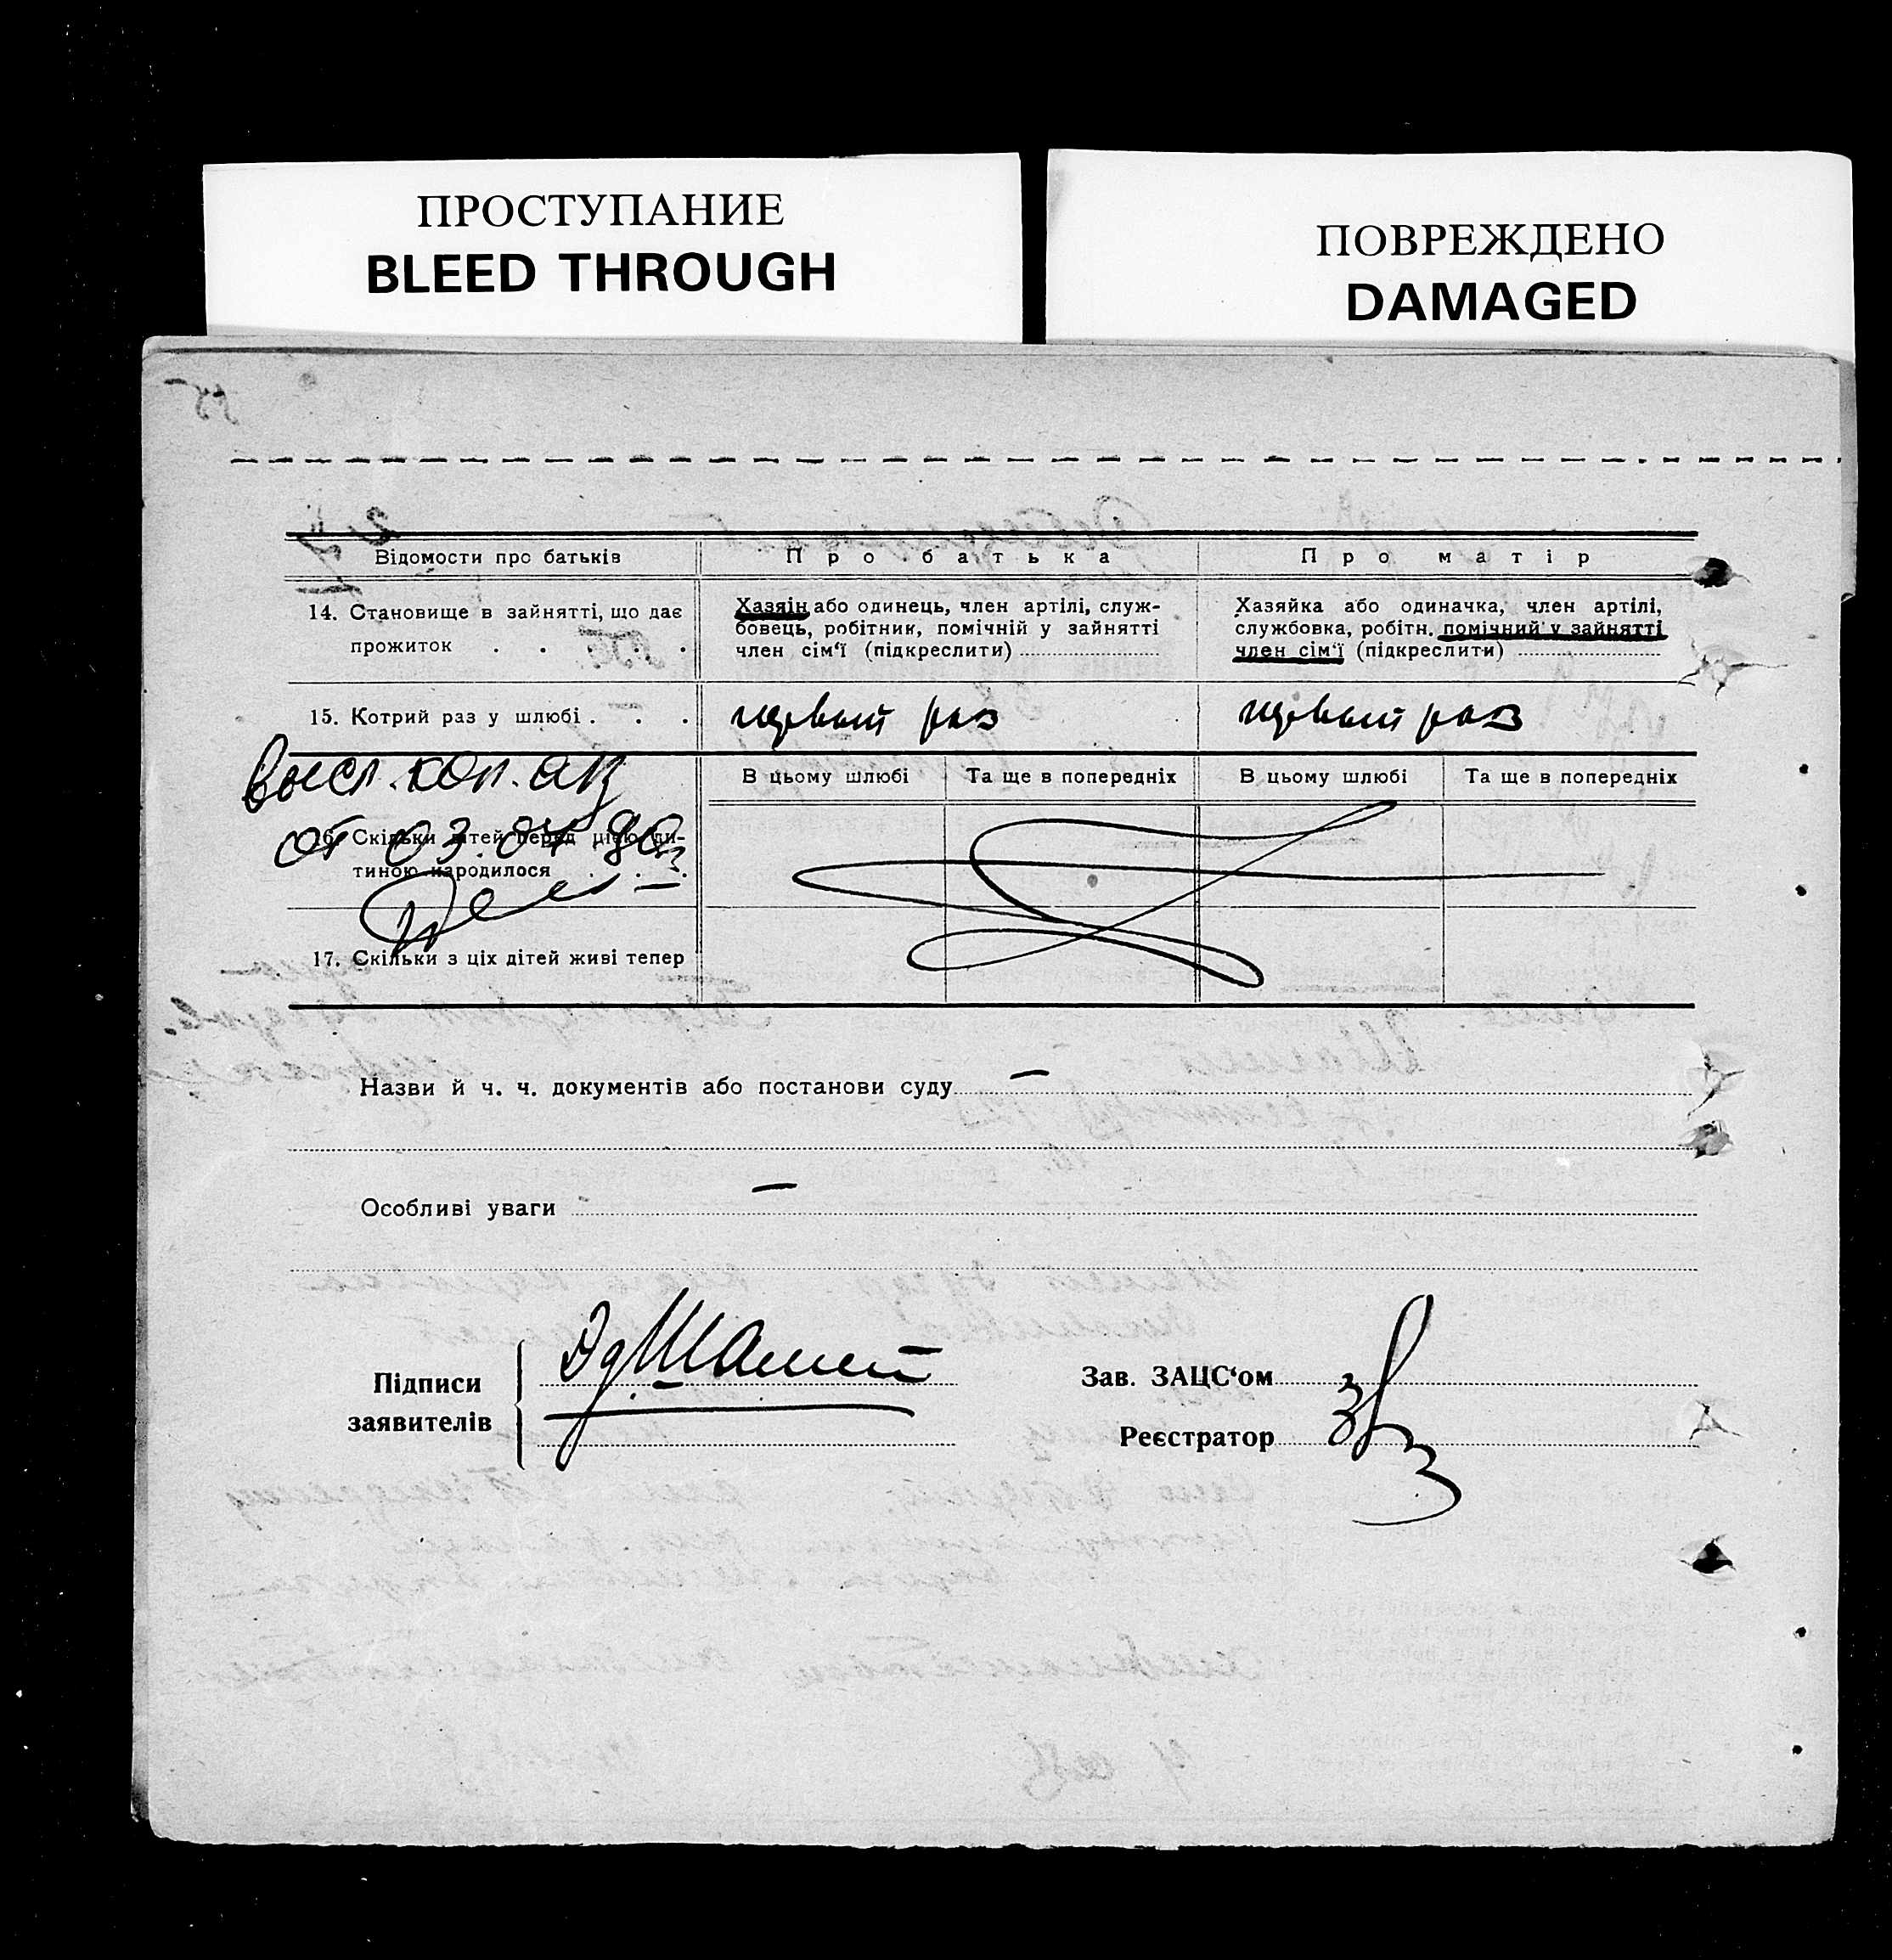 ПРОСТУПАНИЕ
BLEED THROUGH
ПОВРЕЖДЕНО
DAMAGED
Відомости про батьків
Про батька
Про матір
14. Становище в зайнятті, що дає
прожиток . . . . .
Хазяін або одинець, член артілі, служ-
бовець, робітник, помічній у зайнятті
член сім'ї (підкреслити)
Хазяйка або одиначка, член артілі,
службовка, робітн. помічний у зайнятті
член сім'ї (підкреслити)
15. Котрий раз у шлюбі . . .
первый раз
первый раз
Высл. коп. ак
В цьому шлюбі
Та ще в попередніх
В цьому шлюбі
Та ще в попередніх
16. Скільки дітей перед цією ди-
от 03.04.
тиною народилося . . .
17. Скільки з ціх дітей живі тепер
Назви й ч. ч. документів або постанови суду —
Особливі уваги —
Підписи
заявителів
Зав. ЗАЦС'ом
Реєстратор